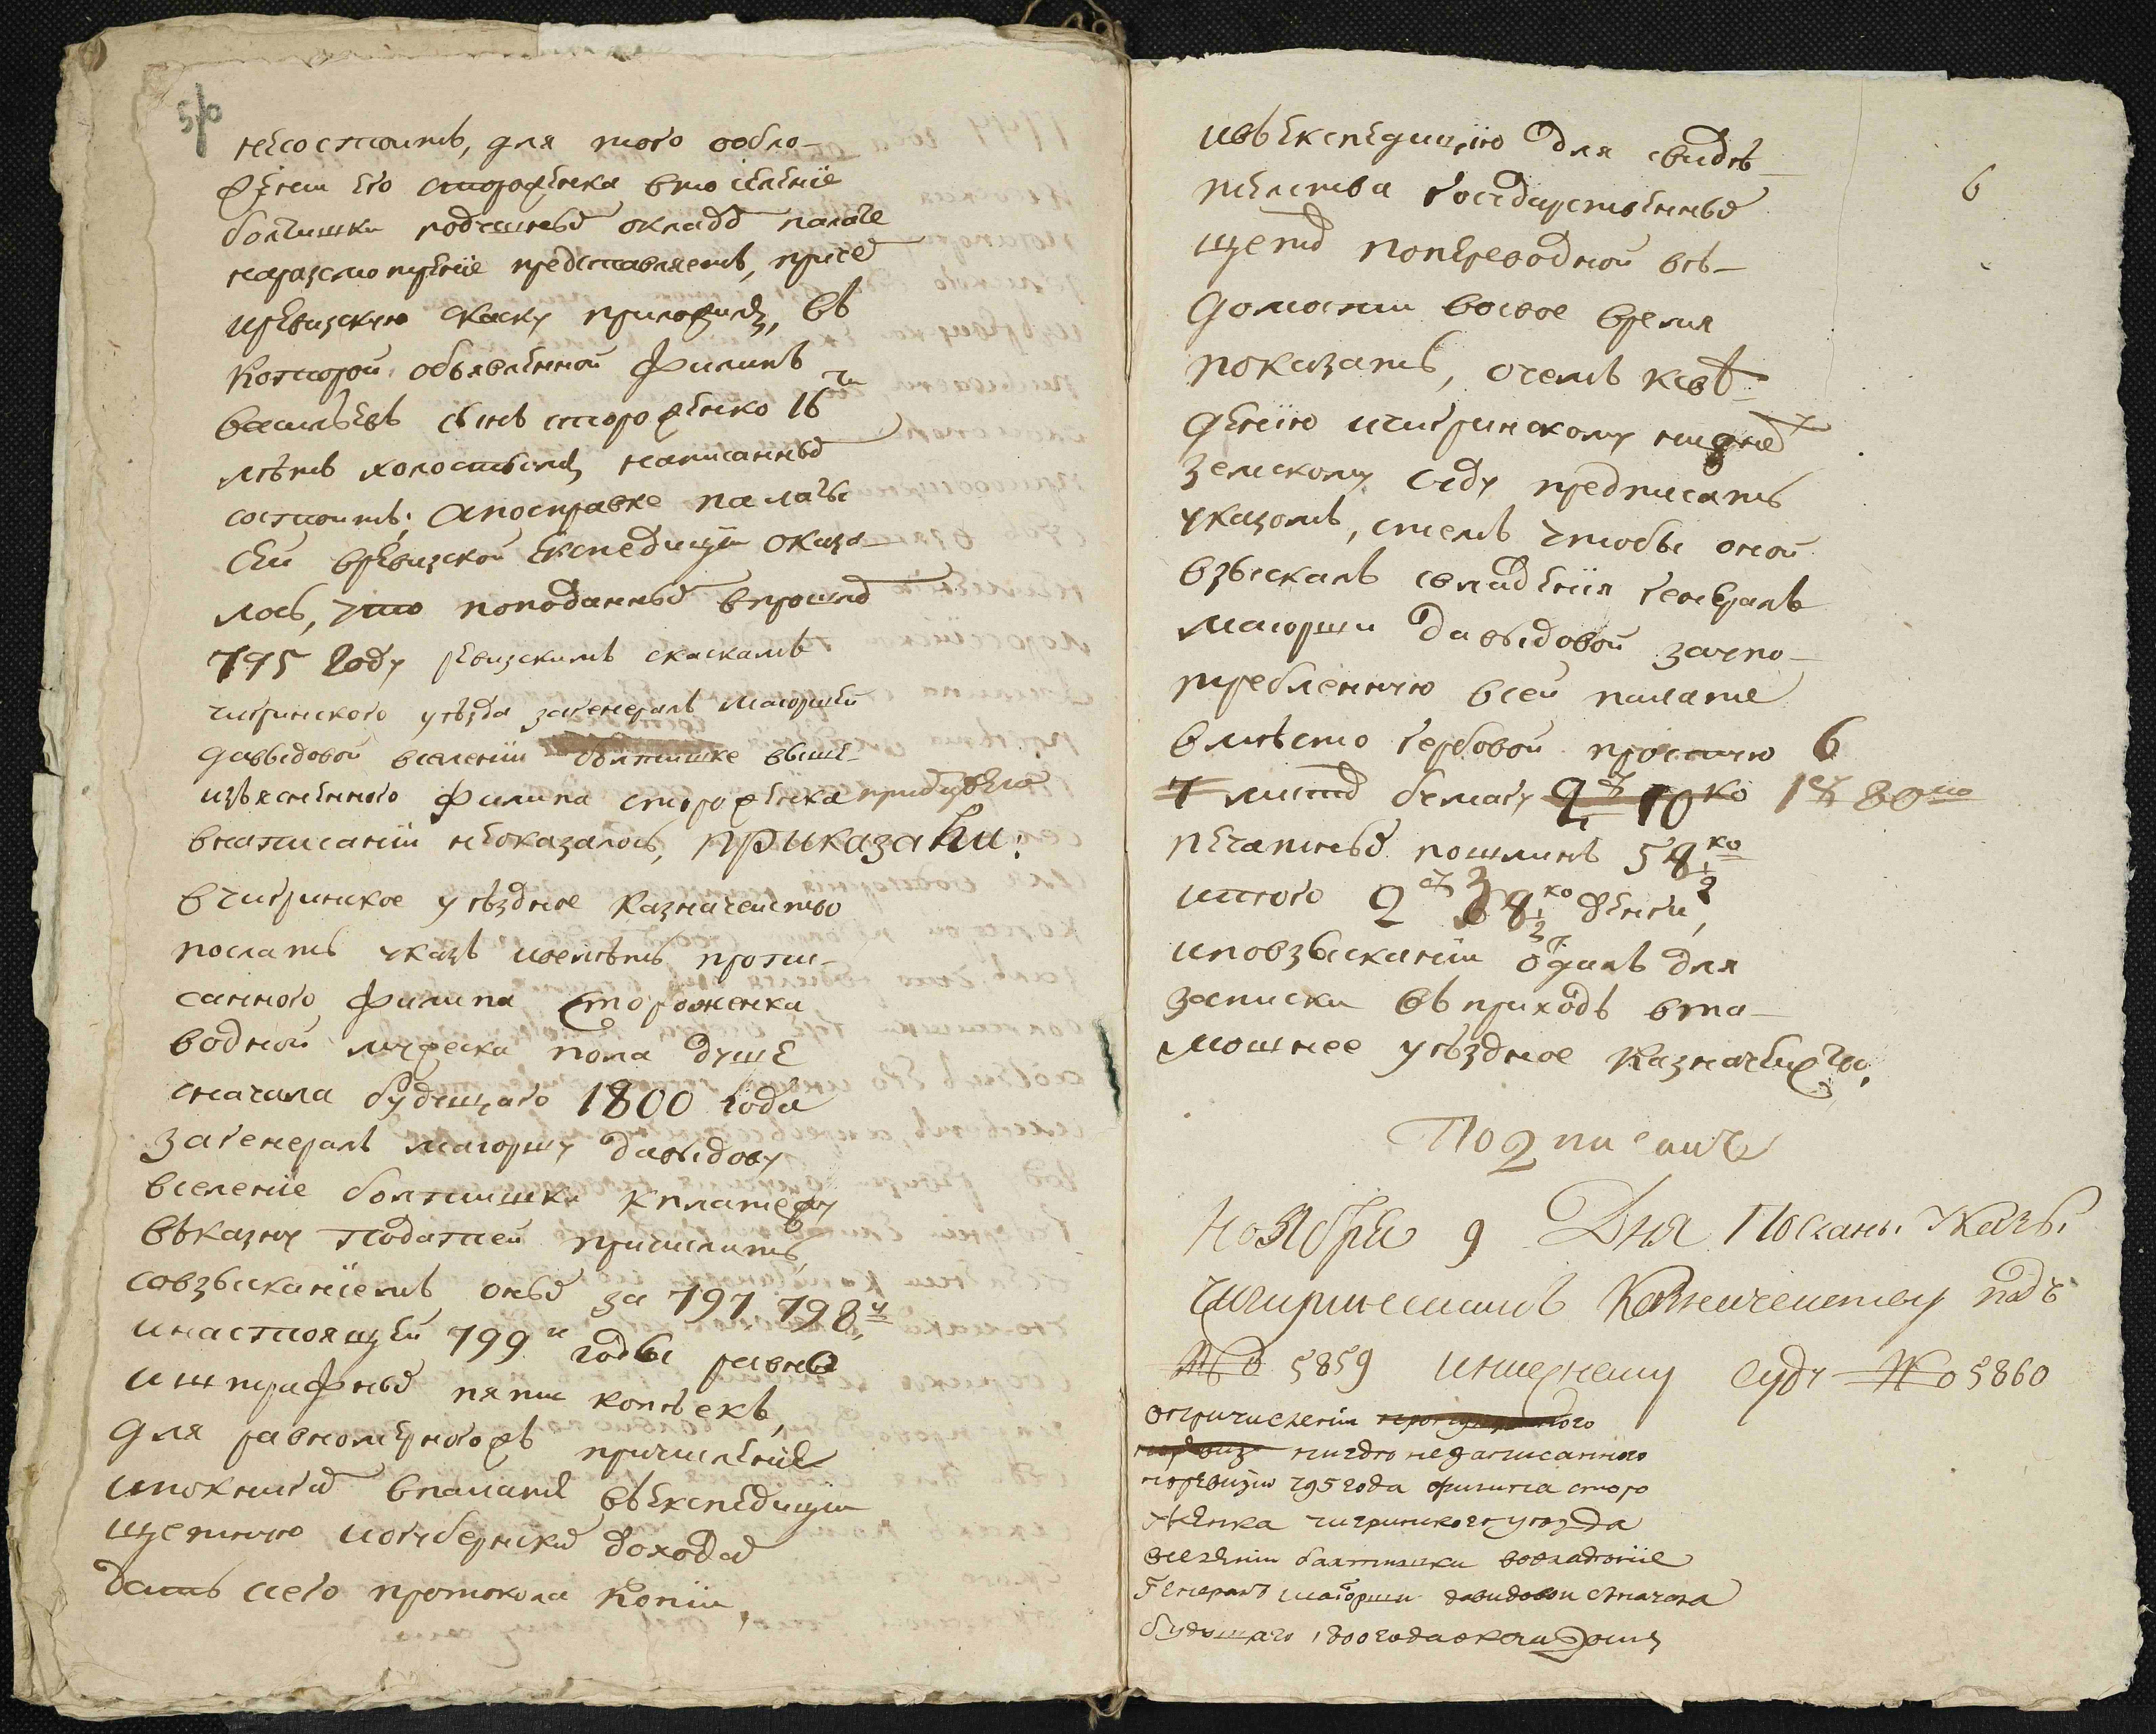 5/0
несостоитъ, для того ообло-
женіи его стороженка вто селеніе
болтишки подушныхъ окладъ палате
наразсмотреніе представляетъ, присе
иревизскую скаску приложилъ, въ
которой объявленной Филипъ
васильевъ сынъ стороженко 16ти
летъ холостымъ написанныхъ
состоитъ; апосправке палаты
сей вревизской експедиціи оказа-
лось, что поподаннымъ впрошломъ
795 году ревизскимъ скаскамъ
чигринского уезда загенералъ маіоршей
давыдовой вселеніи болтишке выше-
изъясненного Филипа стороженка
внаписаніи неоказалось, приказали:
вчигринское уездное казначейство
послать указъ ивелеть пропи-
санного Филипа Стороженка
водной мужеска пола душе
сначала будущаго 1800 года
загенералъ маіоршу давыдову
вселеніе болтишки кплатежу
въказну податей причислить,
совзысканіемъ оныхъ за 797. 798й
инастоящей 799й годы равно
иштрафныхъ пяти копеекъ,
для равномерногожъ причисленія
ипокнигамъ впалате въекспедиціи
щетную огубернскихъ доходахъ
дать сего протокола копіи,
6
ивъекспедицію для свиде-
телства Государственныхъ
щетовъ попереводной ве-
домости восвое время
показать, очемъ ксве-
денію ичигринскому нижнему
земскому суду предписать
указомъ, стемъ чтобы оной
взыскалъ свладенія Генералъ
маіорши давыдовой заупо-
требленную всей палате
вместо гербовой простую 6
7 листовъ бумагу 2р 10ко 1р 80ко
печатныхъ пошлинъ 58½ко
итого 2р 38½ко денги,
иповзысканіи отдалъ для
записки въприходъ вта-
мошнее уездное казначейство.
Подписали
Ноября 9 Дня Посланы Указы
чигиринскимъ Казначейству подъ
№ 5859 инижнему суду № 5860
опричисленіи
нигде незаписанного
поревизіи 795 года филипа сторо
женка чигринского уезда
вселеніи болтишки вовладеніе
Генералъ маіорши давидовой сначала
будущаго 1800 года вокладъ